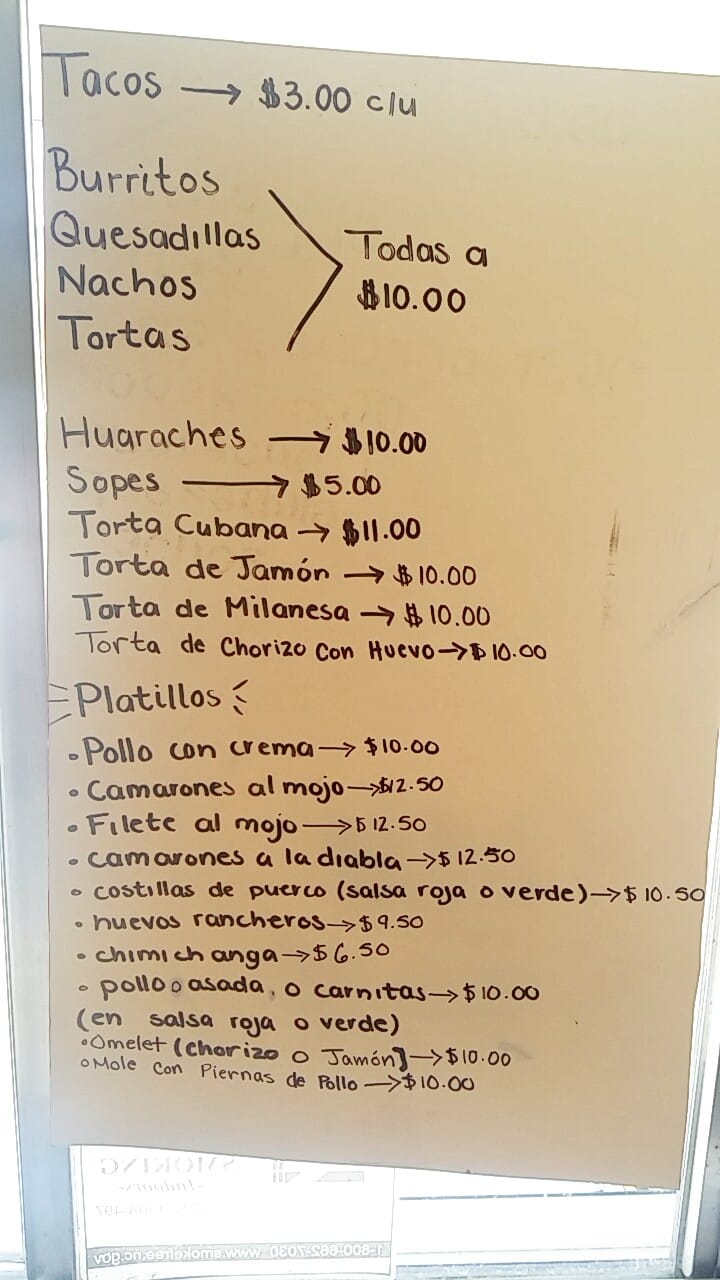 Tacos → $3.00 c/u
Burritos
Quesadillas
Nachos
Tortas
Todas a
$10.00
Huaraches → $10.00
Sopes → $5.00
Torta Cubana → $11.00
Torta de Jamón → $10.00
Torta de Milanesa → $10.00
Torta de Chorizo Con Huevo → $10.00
Platillos
• Pollo con crema → $10.00
• Camarones al mojo → $12.50
• Filete al mojo → $12.50
• camarones a la diabla → $12.50
• costillas de puerco (salsa roja o verde) → $10.50
• huevos rancheros → $9.50
• chimichanga → $6.50
• pollo o asada, o carnitas → $10.00
(en salsa roja o verde)
• Omelet (chorizo o Jamón) → $10.00
• Mole Con Piernas de Pollo → $10.00
SMOKING
-Indoors-
1-800-662-7030 www.smokefree.nc.gov